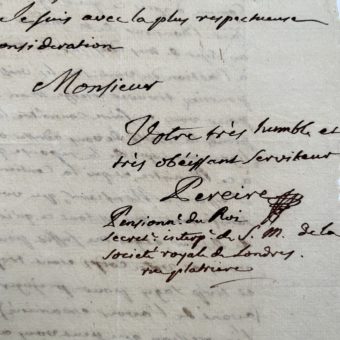 Je suis avec la plus respectueuse
consideration
Monsieur
Votre très humble et
très obéissant Serviteur
Pereire
Pensionn.e du Roi
secret.e interp.e de S. M. de la
Société royale de Londres.
rue platriere